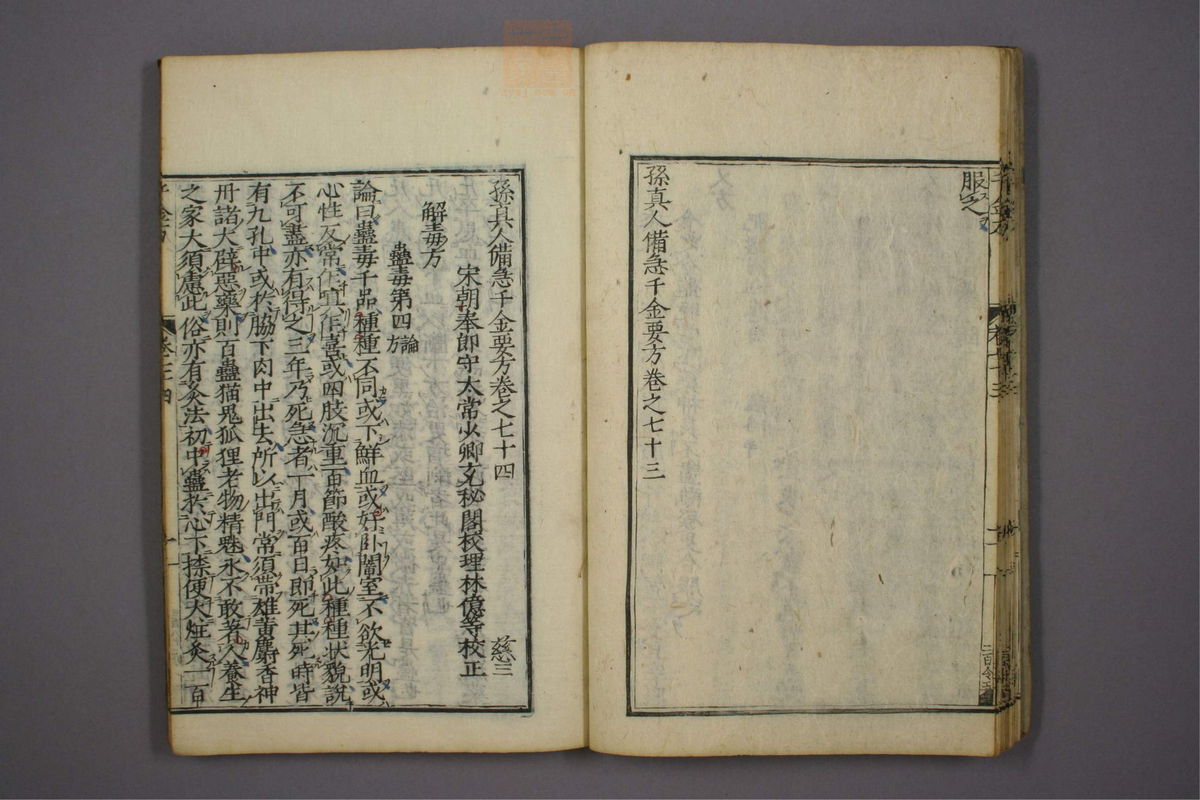 服之
孫真人備急千金要方卷之七十三
孫真人備急千金要方卷之七十四
慈三
宋朝奉郎守太常少卿充秘閣校理林億等校正
解毒方
蠱毒第四 論 方
論曰蠱毒千品種種不同或下鮮血或好卧闇室不欲光明或
心性反常乍嗔乍喜或四肢沉重百節酸疼如此種種狀貌說
不可盡亦有得之三年乃死急者一月或百日即死其死時皆
有九孔中或於脇下肉中出去所以出門常須帶雄黃麝香神
丹諸大辟惡藥則百蠱猫鬼狐狸老物精魅永不敢著人養生
之家大須慮此俗亦有灸法初中蠱於心下捺便大炷灸一百
卷七十四